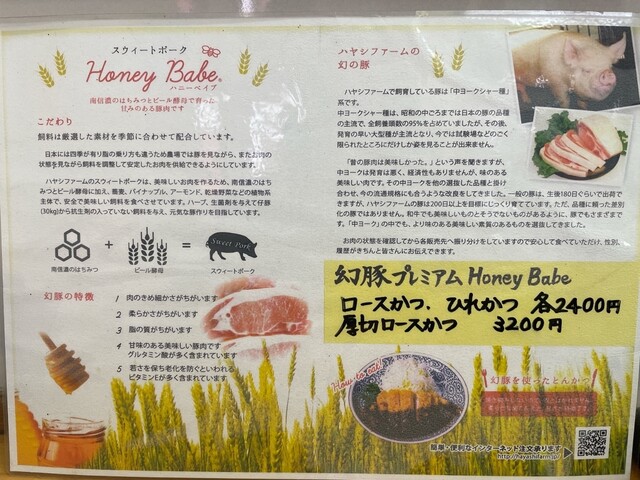 スウィートポーク
Honey Babe®
ハニーベイブ
南信濃のはちみつとビール酵母で育った
甘みのある豚肉です
こだわり
飼料は厳選した素材を季節に合わせて配合しています。
日本には四季が有り脂の乗り方も違うため農場では豚を見ながら、またお肉の
状態を見ながら飼料を調整して安定したお肉を供給できるようにしています。
ハヤシファームのスウィートポークは、美味しいお肉を作るため、南信濃のはち
みつとビール酵母に加え、蕎麦、パイナップル、アーモンド、乾燥野菜などの植物系
主体で、安全で美味しい飼料を食べさせています。ハーブ、生菌剤を与えて仔豚
(30kg)から抗生剤の入っていない飼料を与え、元気な豚作りを目指しています。
南信濃のはちみつ
+
ビール酵母
=
Sweet Pork
スウィートポーク
幻豚の特徴
1 肉のきめ細かさがちがいます
2 柔らかさがちがいます
3 脂の質がちがいます
4 甘味のある美味しい豚肉です
グルタミン酸が多く含まれています
5 若さを保ち老化を防ぐといわれる
ビタミンEが多く含まれています
ハヤシファームの
幻の豚
ハヤシファームで飼育している豚は「中ヨークシャー種」
系です。
中ヨークシャー種は、昭和の中ごろまでは日本の豚の品種
の主流で、全飼養頭数の95%を占めていましたが、その後、
発育の早い大型種が主流となり、今では試験場などのごく
限られたところにだけしか姿を見ることが出来ません。
「昔の豚肉は美味しかった。」という声を聞きますが、中
ヨーク種は発育は悪く、経済性もありませんが、味のある
美味しい肉です。その中ヨークを他の選抜した品種と掛け
合わせ、今の流通規格にも合うような改良をしてきました。一般の豚は、生後180日ぐらいで出荷で
きますが、ハヤシファームの豚は200日以上を目標にじっくり育てています。ただ、品種に頼った差別
化の豚ではありません。和牛でも美味しいものとそうでないものがあるように、豚でもさまざまで
す。「中ヨーク」の中でも、より味のある美味しい素質のあるものを選抜してきました。
お肉の状態を確認してから各販売先へ振り分けをしていますので安心して食べていただけ、性別、
履歴がきちんと皆さんにお伝えできます。
幻豚プレミアム Honey Babe
ロースかつ、ひれかつ 各2400円
厚切ロースかつ 3200円
How to eat!
幻豚を使ったとんかつ
簡単・便利なインターネット注文承ります